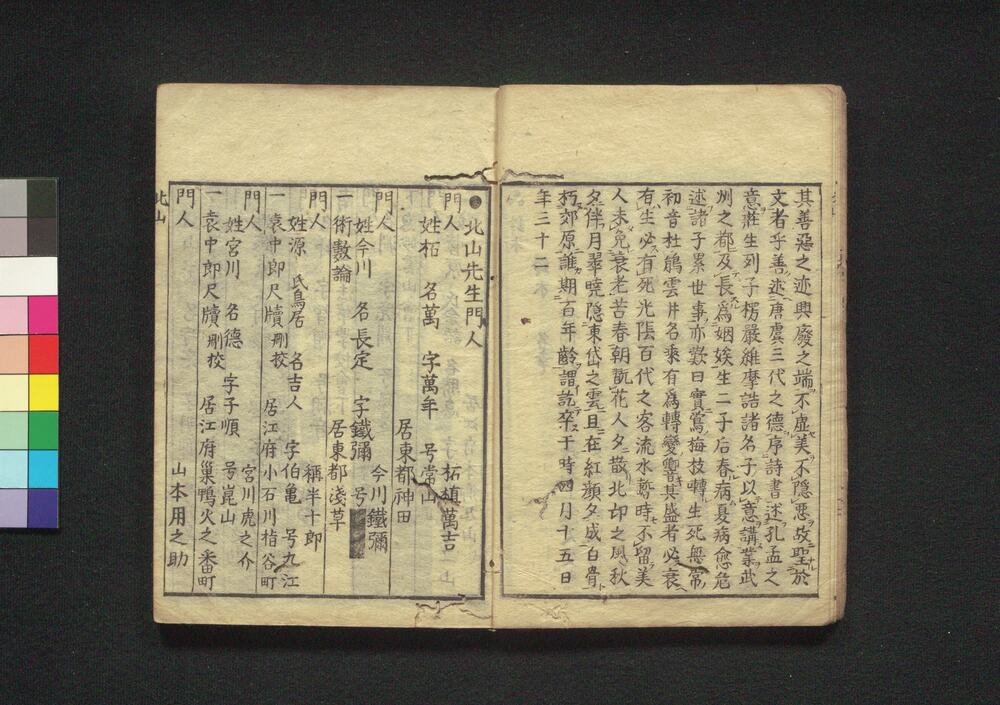 其善惡之迹興廢之端不虛美不隱悪故聖於
文者乎善述唐虞三代之德序詩書述孔孟之
意莊生列子楞嚴維摩誥諸名子以意講業武
州之都及長爲姻娭生二子后春病夏病愈危
述諸子累世事亦数曰實鶯梅枝囀生死無常
初音杜鵑雲井名乘有爲轉變響其盛者必衰
有生必有死光陰百代之客流水蹔時不留美
人未免衰老苦春朝翫花人夕散北邙之風秋
夕伴月輩暁隱東岱之雲旦在紅顔夕成白骨
朽郊原誰期百年齡謂訖卒于時四月十五日
年三十二不
北山先生門人
門人 柘植萬吉
姓柘 名萬 字萬年 号常山
居東都神田
門人 今川鐵彌
姓今川 名長定 字鐵彌 号
一術數論 居東都淺草
門人 稱半十郎
姓源 氏鳥居 名吉人 字伯亀 号九江
一袁中郎尺牘刪挍 居江府小石川指谷町
門人 宮川虎之介
姓宮川 名德 字子順 号崑山
一袁中郎尺牘刪挍 居江府巢鴨火之番町
門人 山本用之助
北山